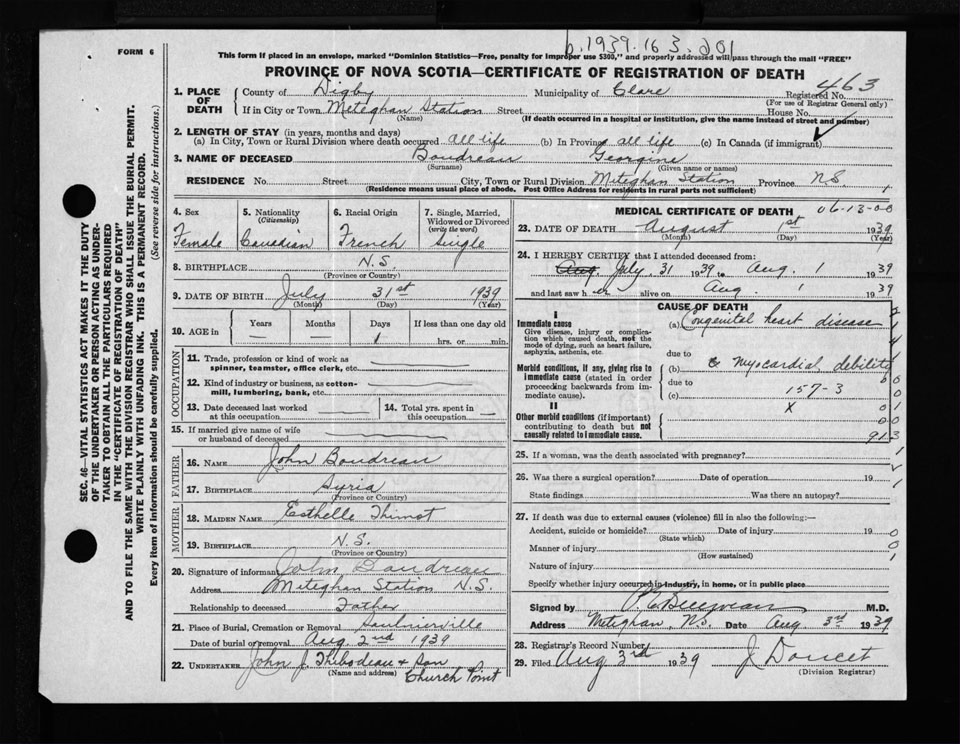 b. 1939. 163. 201
FORM 6
This form if placed in an envelope, marked "Dominion Statistics—Free, penalty for improper use $300," and properly addressed will pass through the mail "FREE"
PROVINCE OF NOVA SCOTIA—CERTIFICATE OF REGISTRATION OF DEATH
1. PLACE OF DEATH
County of Digby Municipality of Clare Registered No. 463
(For use of Registrar General only)
If in City or Town Meteghan Station Street House No.
(Name) (If death occurred in a hospital or institution, give the name instead of street and number)
2. LENGTH OF STAY (in years, months and days)
(a) In City, Town or Rural Division where death occurred all life (b) In Province all life (c) In Canada (if immigrant)
3. NAME OF DECEASED Boudreau Georgine
(Surname) (Given name or names)
RESIDENCE No. Street City, Town or Rural Division Meteghan Station Province N.S.
(Residence means usual place of abode. Post Office Address for residents in rural parts not sufficient)
SEC. 46—VITAL STATISTICS ACT MAKES IT THE DUTY
OF THE UNDERTAKER OR PERSON ACTING AS UNDER-
TAKER TO OBTAIN ALL THE PARTICULARS REQUIRED
IN THE "CERTIFICATE OF REGISTRATION OF DEATH"
AND TO FILE THE SAME WITH THE DIVISION REGISTRAR WHO SHALL ISSUE THE BURIAL PERMIT.
WRITE PLAINLY WITH UNFADING INK. THIS IS A PERMANENT RECORD.
Every item of information should be carefully supplied. (See reverse side for instructions.)
4. Sex 5. Nationality (Citizenship) 6. Racial Origin 7. Single, Married, Widowed or Divorced (write the word)
Female Canadian French Single
8. BIRTHPLACE N.S.
(Province or Country)
9. DATE OF BIRTH July 31st 1939
(Month) (Day) (Year)
10. AGE in Years Months Days If less than one day old
— — 1 hrs. or min.
OCCUPATION
11. Trade, profession or kind of work as spinner, teamster, office clerk, etc.
12. Kind of industry or business, as cotton-mill, lumbering, bank, etc.
13. Date deceased last worked at this occupation —
14. Total yrs. spent in this occupation —
15. If married give name of wife or husband of deceased
FATHER
16. NAME John Boudreau
17. BIRTHPLACE Syria
(Province or Country)
MOTHER
18. MAIDEN NAME Esthelle Thimot
19. BIRTHPLACE N.S.
(Province or Country)
20. Signature of informant John Boudreau
Address Meteghan Station N.S.
Relationship to deceased Father
21. Place of Burial, Cremation or Removal Saulnierville
Date of burial or removal Aug. 2nd 1939
22. UNDERTAKER John J. Thibodeau & Son
(Name and address) Church Point
MEDICAL CERTIFICATE OF DEATH 06-13-00
23. DATE OF DEATH August 1st 1939
(Month) (Day) (Year)
24. I HEREBY CERTIFY that I attended deceased from:
Aug. July 31 1939 to Aug. 1 1939
and last saw h er alive on Aug. 1 1939
CAUSE OF DEATH
I
Immediate cause
Give disease, injury or complication which caused death, not the mode of dying, such as heart failure, asphyxia, asthenia, etc.
(a) Congenital heart disease
due to
Morbid conditions, if any, giving rise to immediate cause (stated in order proceeding backwards from immediate cause).
(b) & myocardial debility
due to
(c) 157-3
X
II
Other morbid conditions (if important) contributing to death but not causally related to immediate cause.
913
25. If a woman, was the death associated with pregnancy?
26. Was there a surgical operation? Date of operation 19
State findings Was there an autopsy?
27. If death was due to external causes (violence) fill in also the following:—
Accident, suicide or homicide? Date of injury 19
(State which)
Manner of injury
(How sustained)
Nature of injury
Specify whether injury occurred in industry, in home, or in public place
Signed by M.D.
Address Meteghan, N.S. Date Aug 3rd 1939
28. Registrar's Record Number
29. Filed Aug 3rd 1939 J Doucet
(Division Registrar)